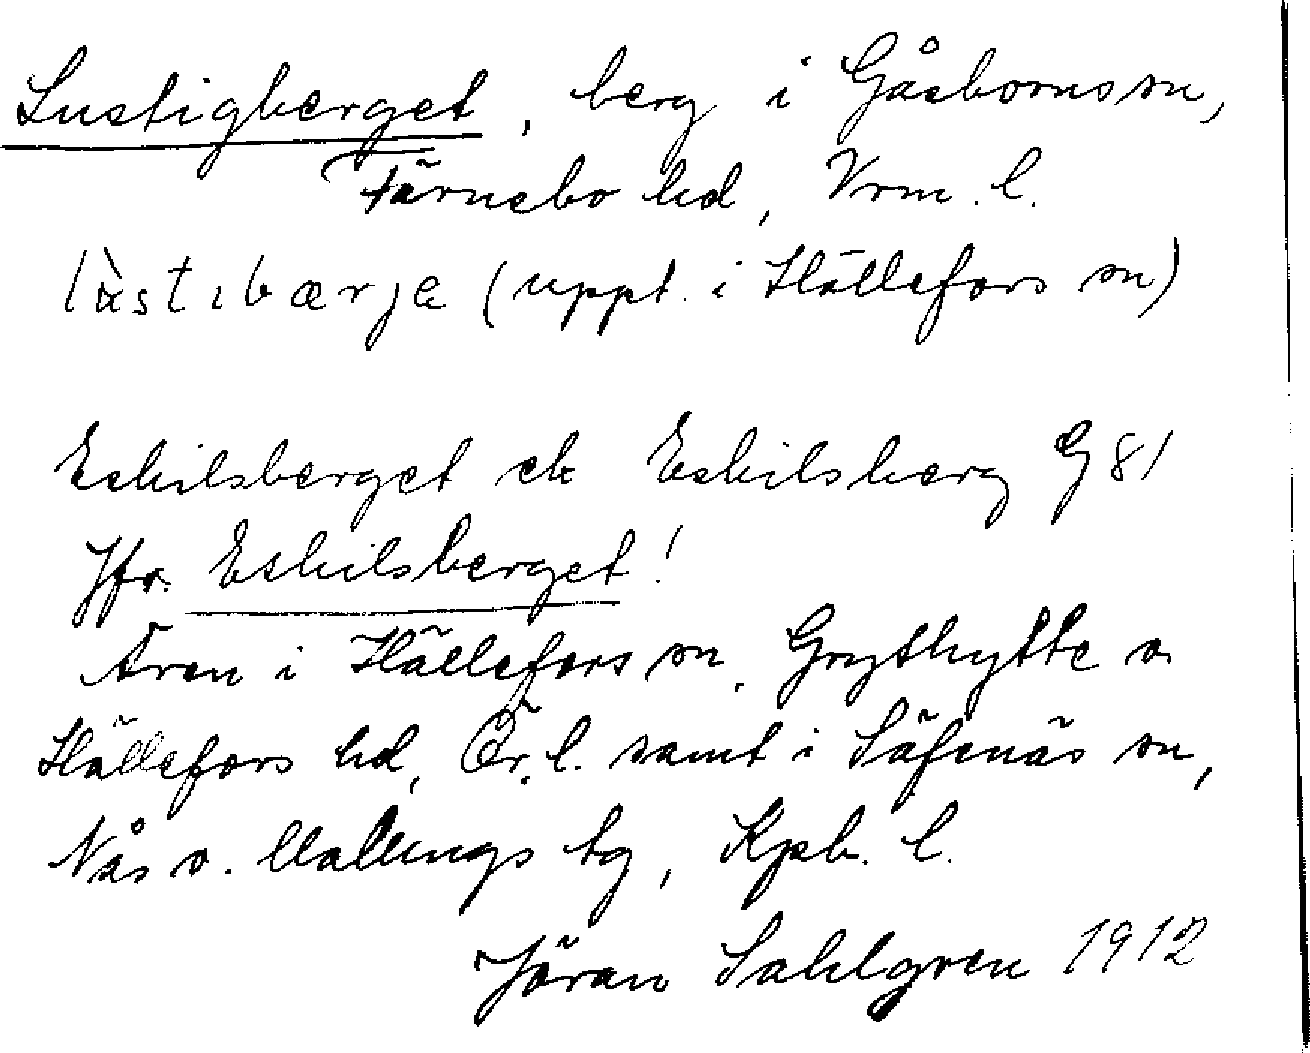 Lustigberget, berg i Gåsborns sn,
Färnebo hd, Vrm. l.
lùstıbærjɐ (uppt. i Hällefors sn)
Eskilsberget ek Eskilsberg G 81
Jfr. Eskilsberget!
Även i Hällefors sn, Grythytte o.
Hällefors hd, Ör. l. samt i Säfsnäs sn,
Nås o. Malungs tg, Kpb. l.
Jöran Sahlgren 1912